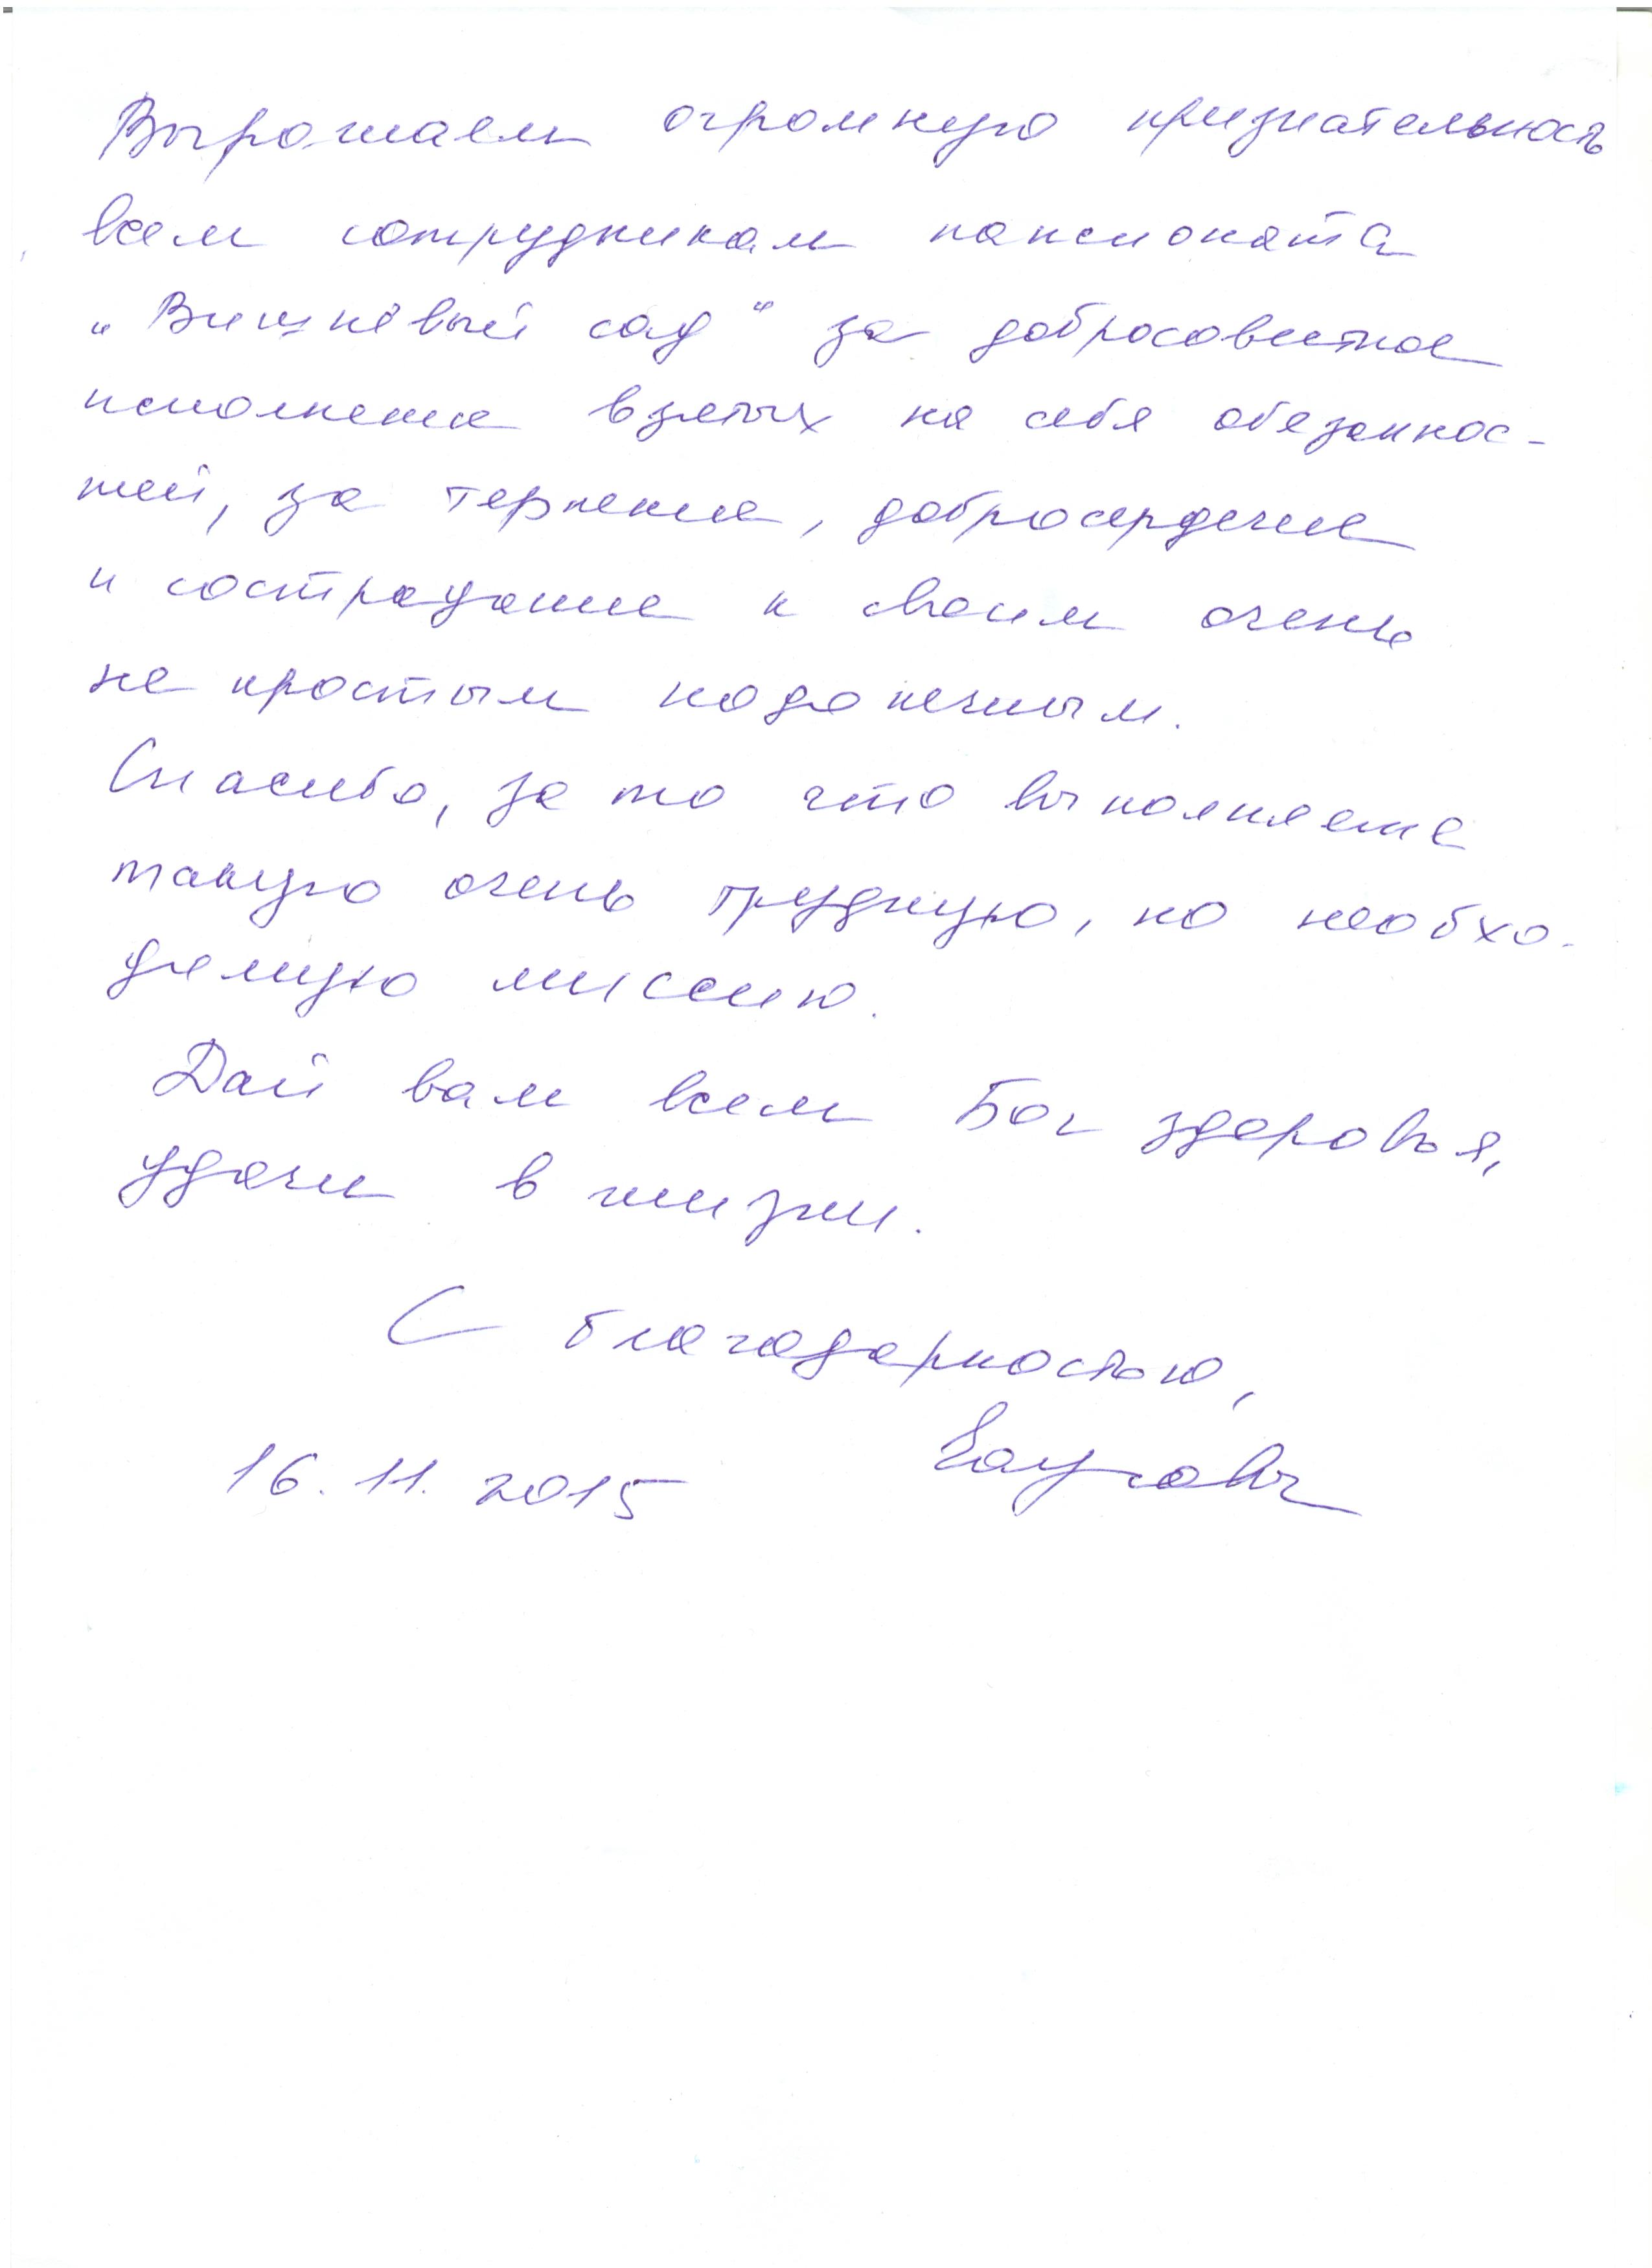 Выражаем огромную признательность
всем сотрудникам пансионата
„Вишнёвый сад" за добросовестное
исполнение взятых на себя обязаннос-
тей, за терпение, добросердечие
и сострадание к своим очень
не простым подопечным.
Спасибо, за то что выполняете
такую очень трудную, но необхо-
димую миссию.
Дай вам всем Бог здоровья,
удачи в жизни.
С благодарностью,
16.11.2015